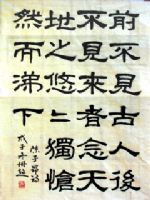 前不見古人後
不見來者念天
地之悠々獨愴
然而涕下
陳子昂詩